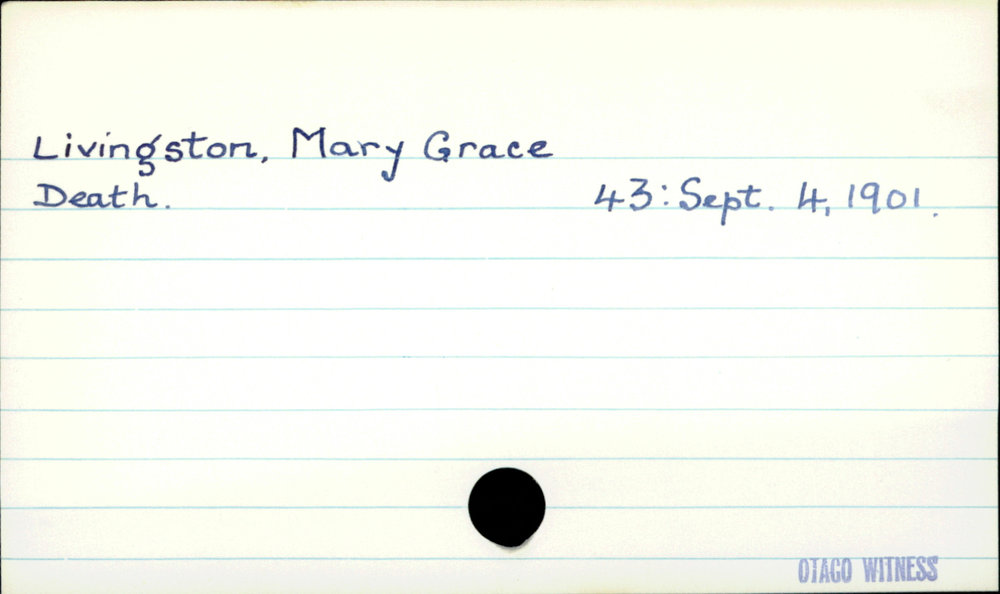 Livingston, Mary Grace
Death. 43: Sept. 4, 1901.
OTAGO WITNESS